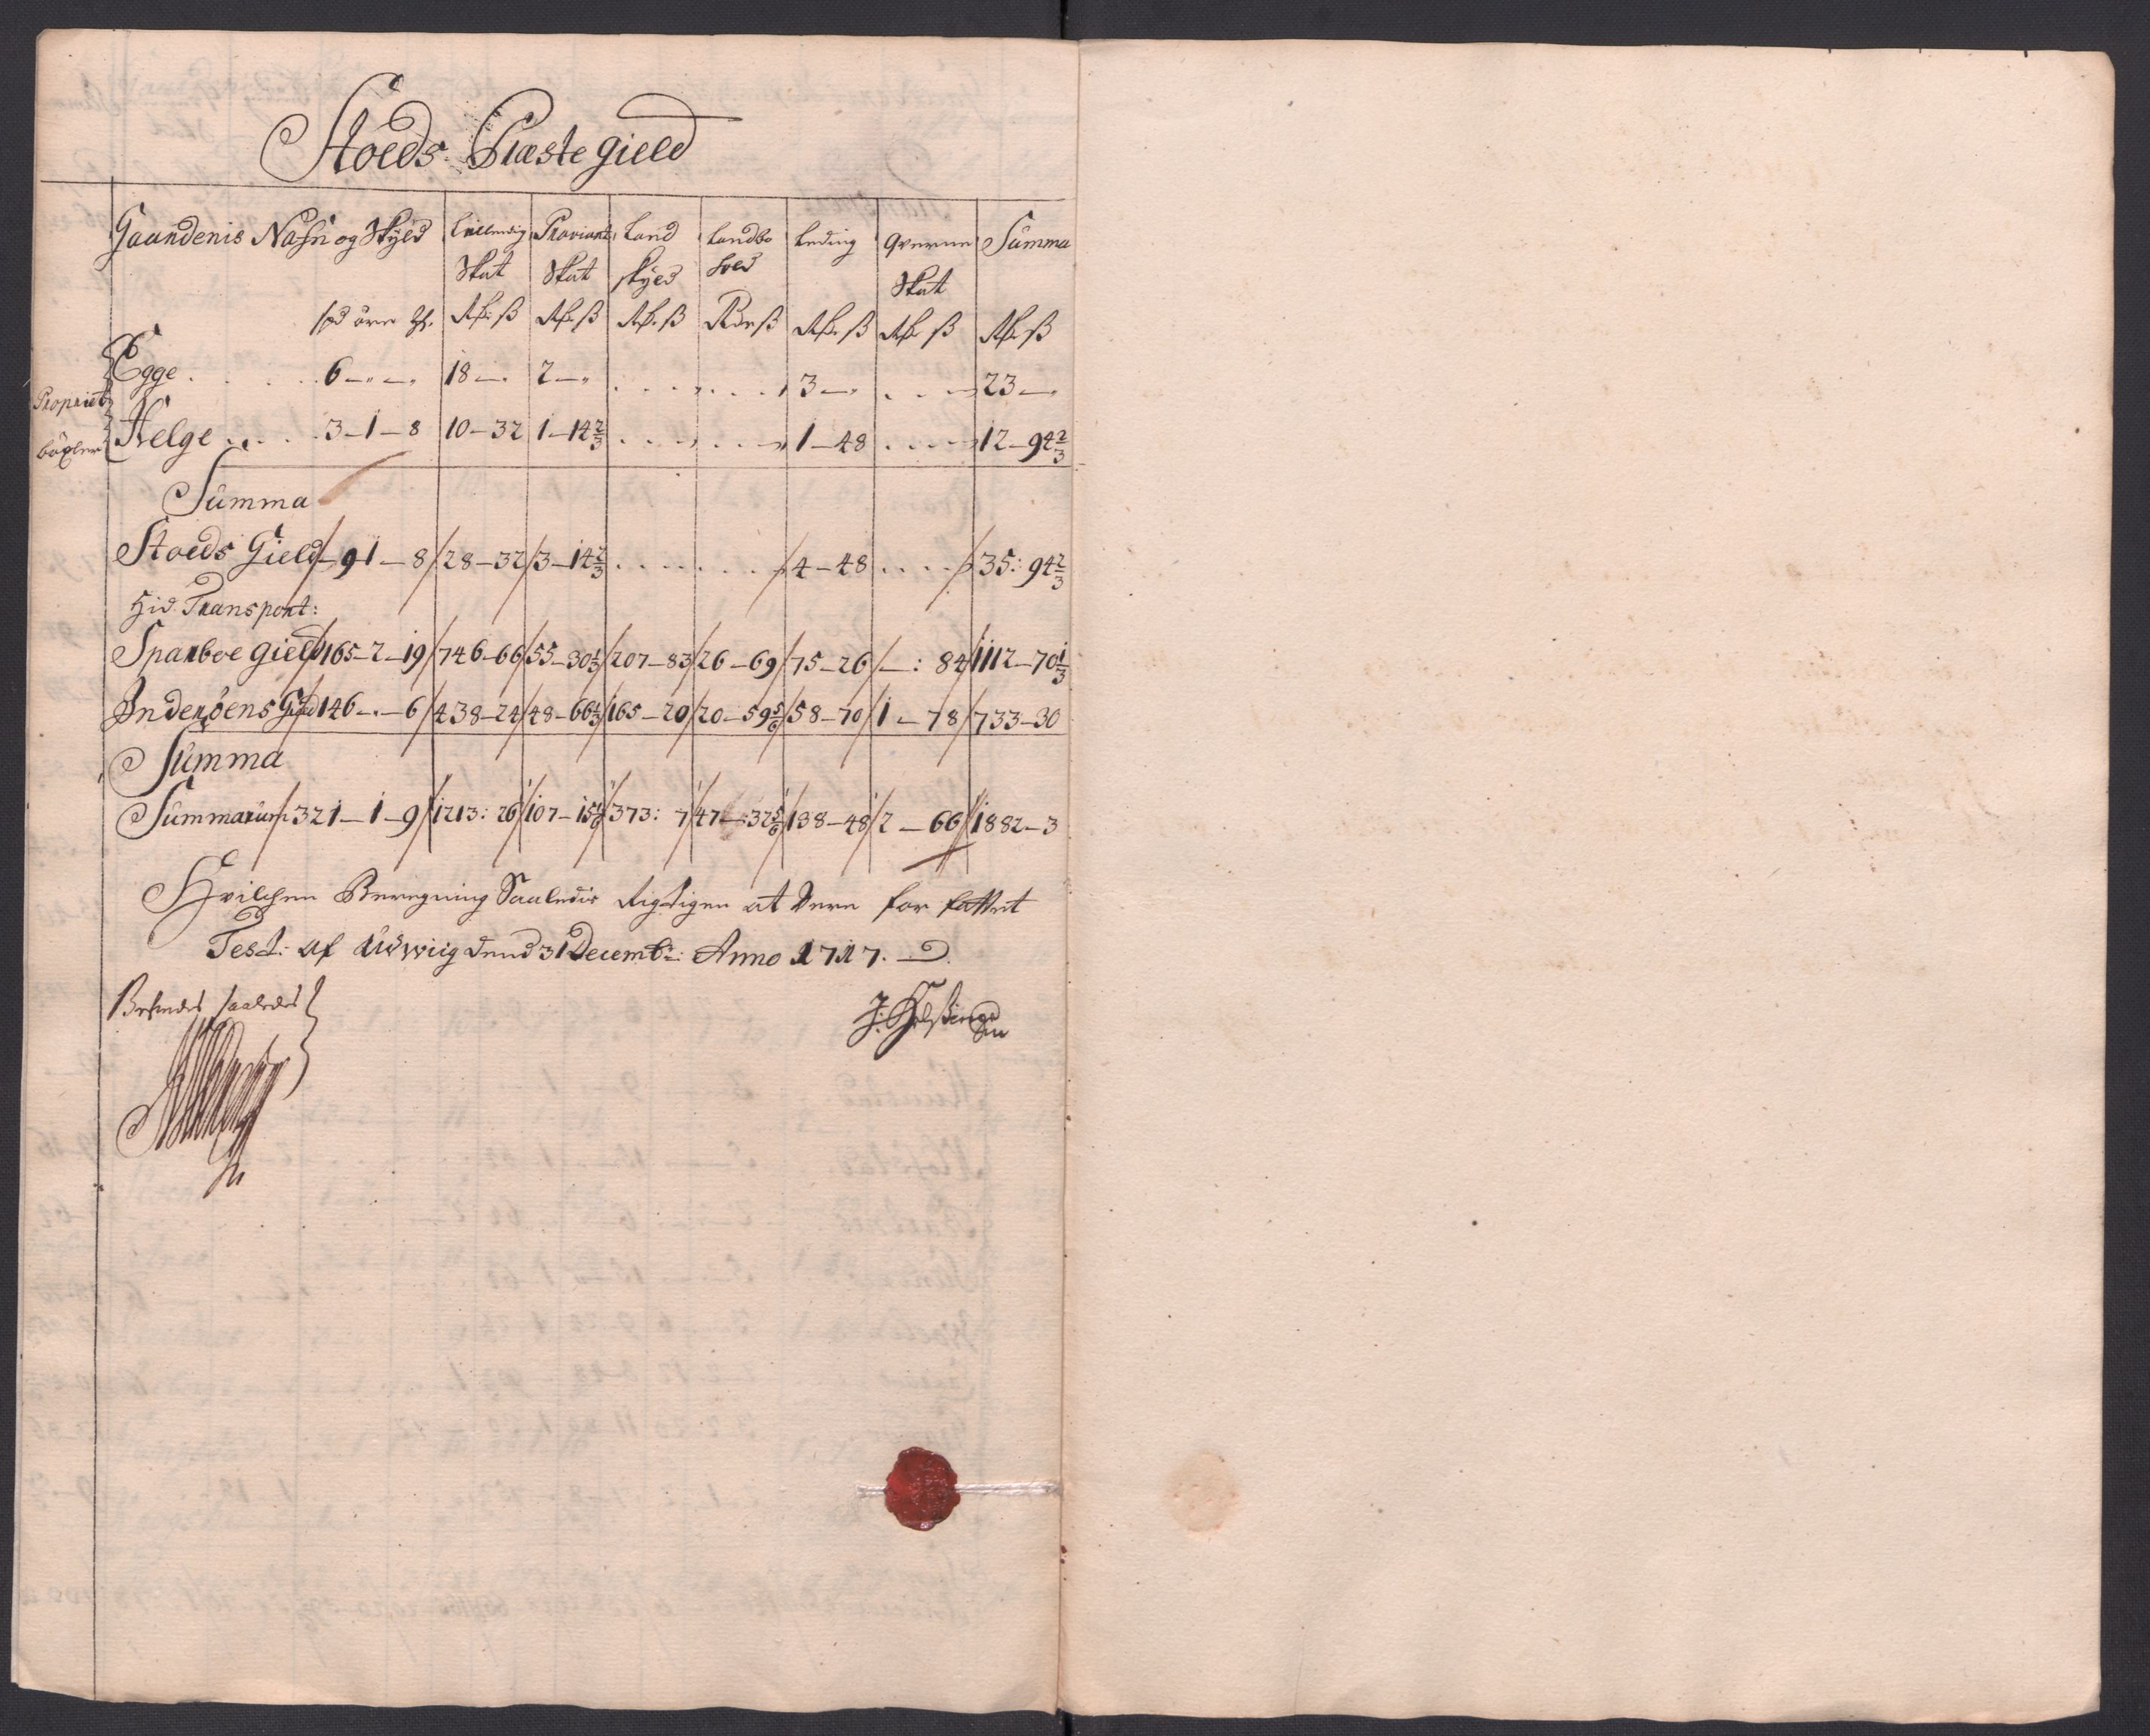 Stoeds Præste gield
Gaardenis Nafn og Skyld | Leilending Skat | Proviant Skat | Land skyld | Landbo hold | Leding | Qverne Skat | Summa
spd öre | Rdr ß | Rdr ß | Rdr ß | Rdr ß | Rdr ß | Rdr ß | Rdr ß
Propriet: böxler
Egge . . . . 6 — „ — „ | 18 — „ | 2 — „ | . . . „ | . . . „ | 3 — „ | . . — „ | 23 — „
Helge . . . . 3 — 1 — 8 | 10 — 32 | 1 — 14 2/3 | . . . „ | . . . „ | 1 — 48 | . . . „ | 12 — 94 2/3
Summa
Stoeds Gield — 9 1 — 8 | 28 — 32 | 3 — 14 2/3 | . . . . | . . . | 4 — 48 | . . . . | 35: 94 2/3
Hid Transport:
Sparboe gield 165 — 2 — 19 | 746 — 66 | 55 — 30 1/3 | 207 — 83 | 26 — 69 | 75 — 26 | — : 84 | 1112 — 70 1/3
Inderöens Gield 146 — „ — 6 | 438 — 24 | 48 — 66 1/3 | 165 — 20 | 20 — 59 5/6 | 58 — 70 | 1 — 78 | 733 — 30
Summa
Summarum 321 — 1 — 9 | 1213: 26 | 107 — 15 1/6 | 373: 7 | 47 — 32 5/6 | 138 — 48 | 2 — 66 | 1882 — 3
Hvilchen Beregning Saaledis Rigtigen at Være for fattet
Test: af Udwiig dend 31 Decembr: Anno 1717.
Befindes saaledes